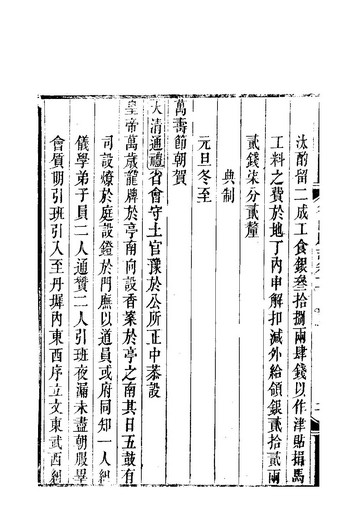 汰酌留二成工食銀叄拾捌兩肆錢以作津貼揖馬
工料之費於地丁內申解扣減外給領銀貳拾貳兩
貳錢柒分貳釐
典制
元旦冬至
萬壽節朝賀
大清通禮省會守土官豫於公所正中恭設
皇帝萬歲龍牌於亭南向設香案於亭之南其日五鼓有
司設燎於庭設鐙於門廡以道員或府同知一人糾
儀學弟子員二人通贊二人引班夜漏未盡朝服畢
會質明引班引入至丹墀內東西序立文東武西糾